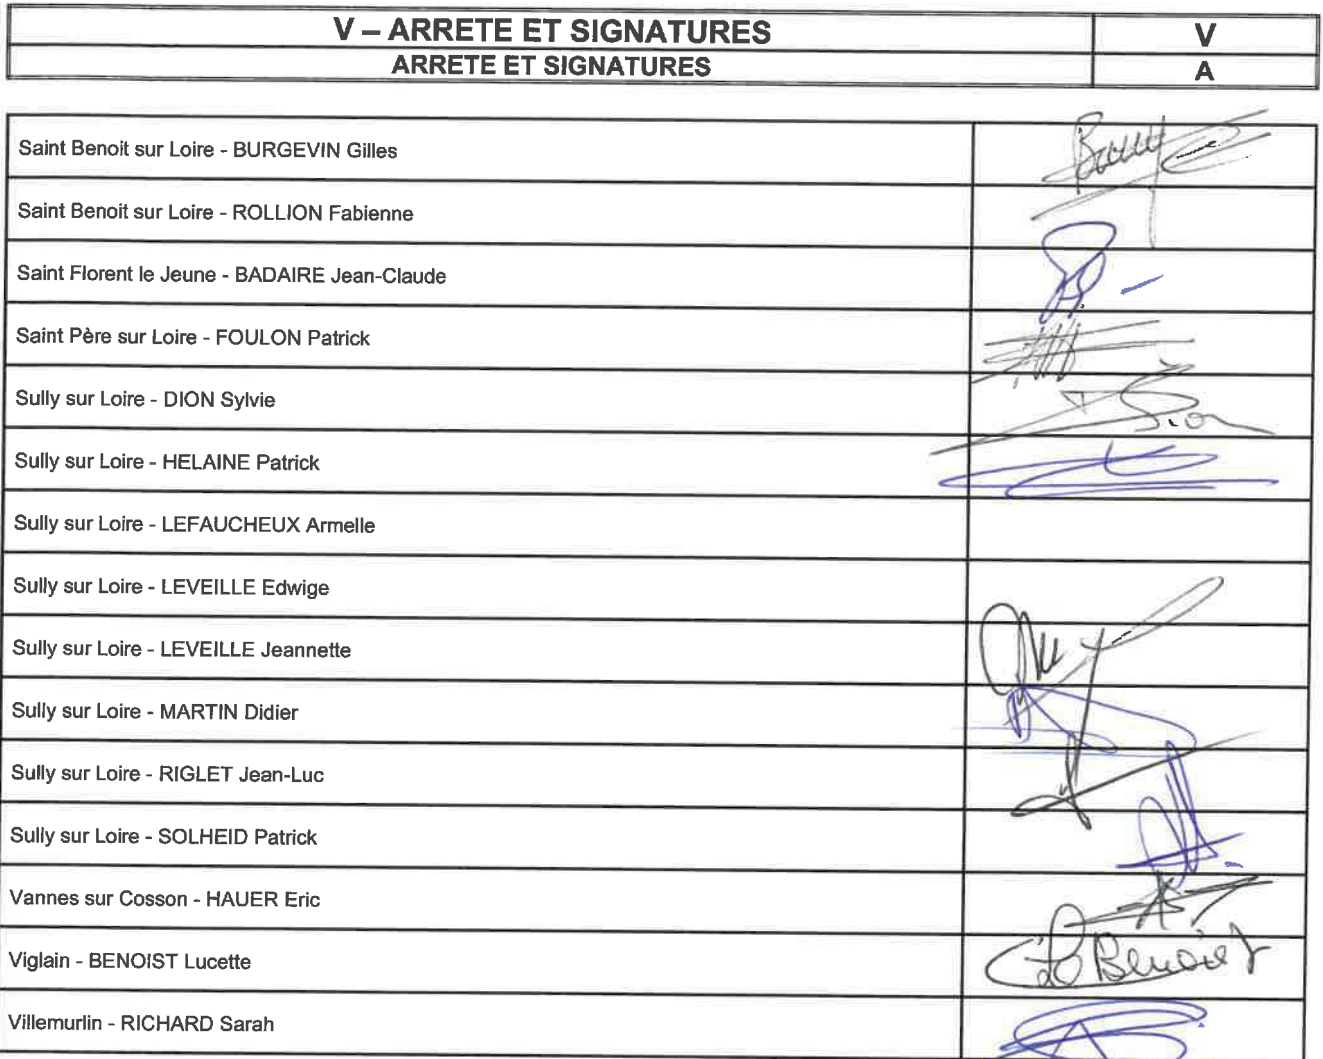 V – ARRETE ET SIGNATURES V
ARRETE ET SIGNATURES A
Saint Benoit sur Loire - BURGEVIN Gilles
Saint Benoit sur Loire - ROLLION Fabienne
Saint Florent le Jeune - BADAIRE Jean-Claude
Saint Père sur Loire - FOULON Patrick
Sully sur Loire - DION Sylvie
Sully sur Loire - HELAINE Patrick
Sully sur Loire - LEFAUCHEUX Armelle
Sully sur Loire - LEVEILLE Edwige
Sully sur Loire - LEVEILLE Jeannette
Sully sur Loire - MARTIN Didier
Sully sur Loire - RIGLET Jean-Luc
Sully sur Loire - SOLHEID Patrick
Vannes sur Cosson - HAUER Eric
Viglain - BENOIST Lucette Benoist
Villemurlin - RICHARD Sarah